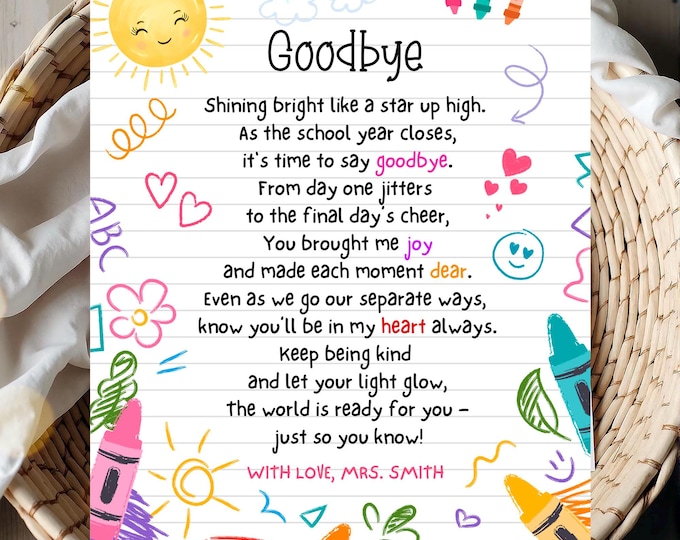 Goodbye
Shining bright like a star up high.
As the school year closes,
it's time to say goodbye.
From day one jitters
to the final day's cheer,
You brought me joy
and made each moment dear.
Even as we go our separate ways,
know you'll be in my heart always.
Keep being kind
and let your light glow,
The world is ready for you –
just so you know!
WITH LOVE, MRS. SMITH
ABC